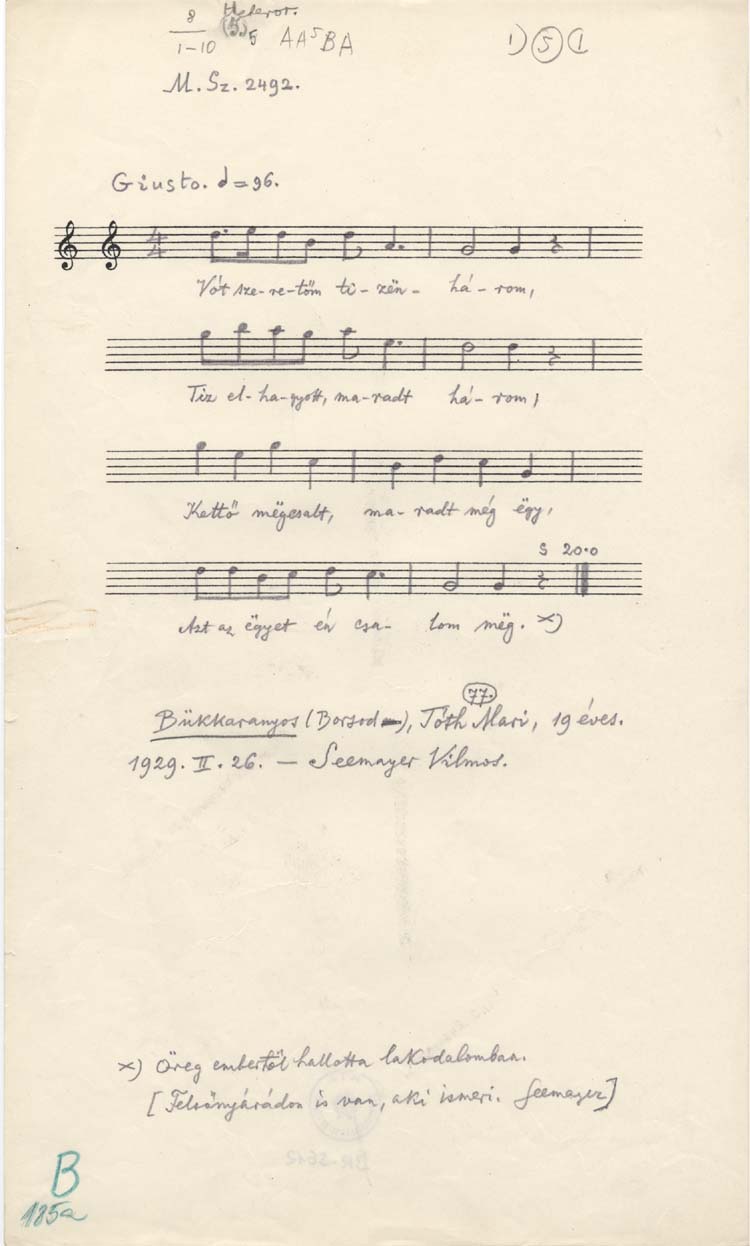 8 Heterot.
1-10 (5) 5 AA⁵BA 1) (5) (1
M. Sz. 2492.
Giusto. d=96.
4
4
Vót sze-re-töm ti-zën- há-rom,
Tiz el-ha-gyott, ma-radt há-rom,
Kettő mëgcsalt, ma-radt még ëgy,
S 20.0
Azt az ëgyet én csa- lom mëg. x)
77.
Bükkaranyos (Borsod), Tóth Mari, 19 éves.
1929. II. 26. — Seemayer Vilmos.
x) Öreg embertől hallotta lakodalomban.
[Felsőnyárádon is van, aki ismeri. Seemayer]
B
185a